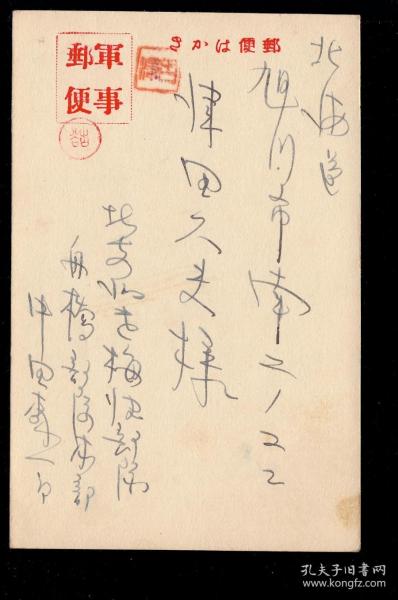 郵便はかき
軍事
郵便
北海道
旭川市南二ノ二二
津田久夫様
北支派遣梅津部隊
舟橋部隊本部
孔夫子旧书网
www.kongfz.com